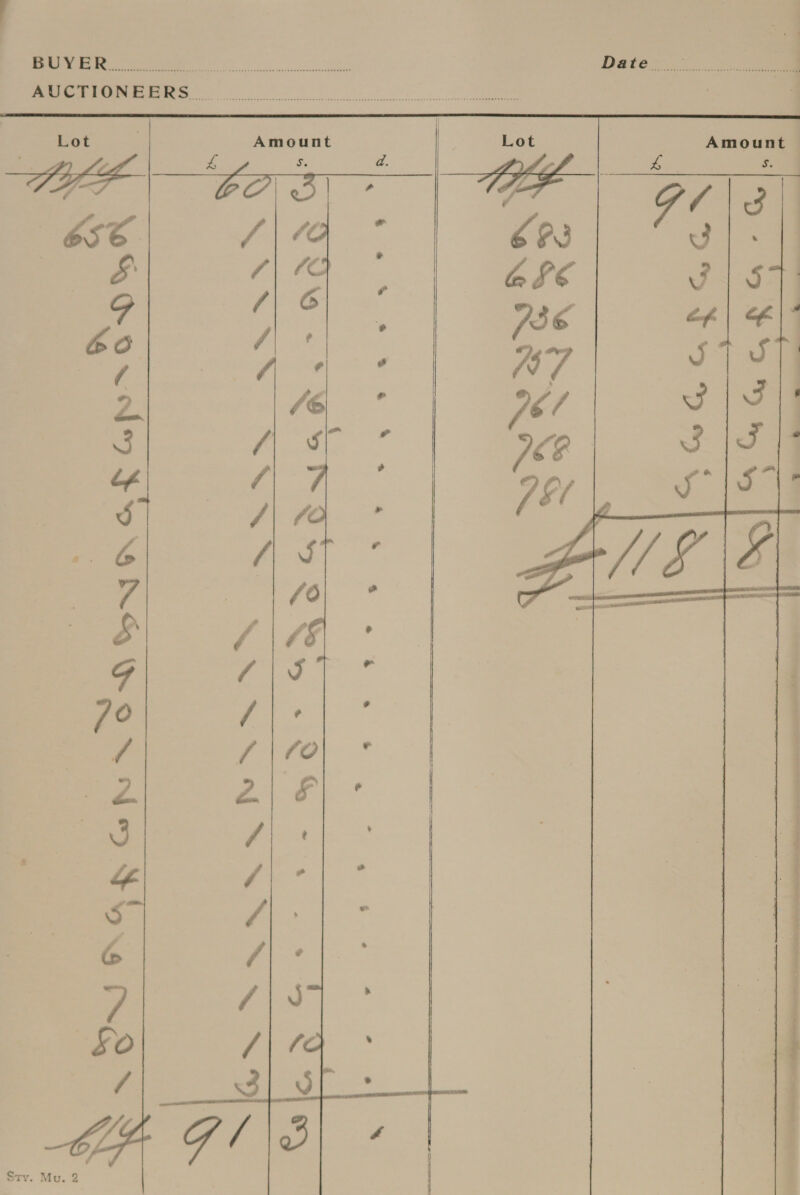 BUYER Date
AUCTIONEERS
Lot Amount Lot Amount
£ s. d. £ s.
60 3 " 91 3
656 1 10 " 683 3 "
8 1 10 " 686 3 5 "
9 1 6 " 736 4 4 "
60 1 " " 757 5 5 "
1 1 " " 761 3 3 "
2 16 " 768 3 3 "
3 1 5 " 781 5 5 "
4 1 7 " £118 8
5 1 10 "
6 1 5 "
7 10 "
8 1 18 "
9 1 5 "
70 1 " "
1 1 10 "
2 2 8 "
3 1 " "
4 1 " "
5 1 " "
6 1 " "
7 1 5 "
80 1 10 "
1 3 5 "
91 3 "
Srv. Mu. 2